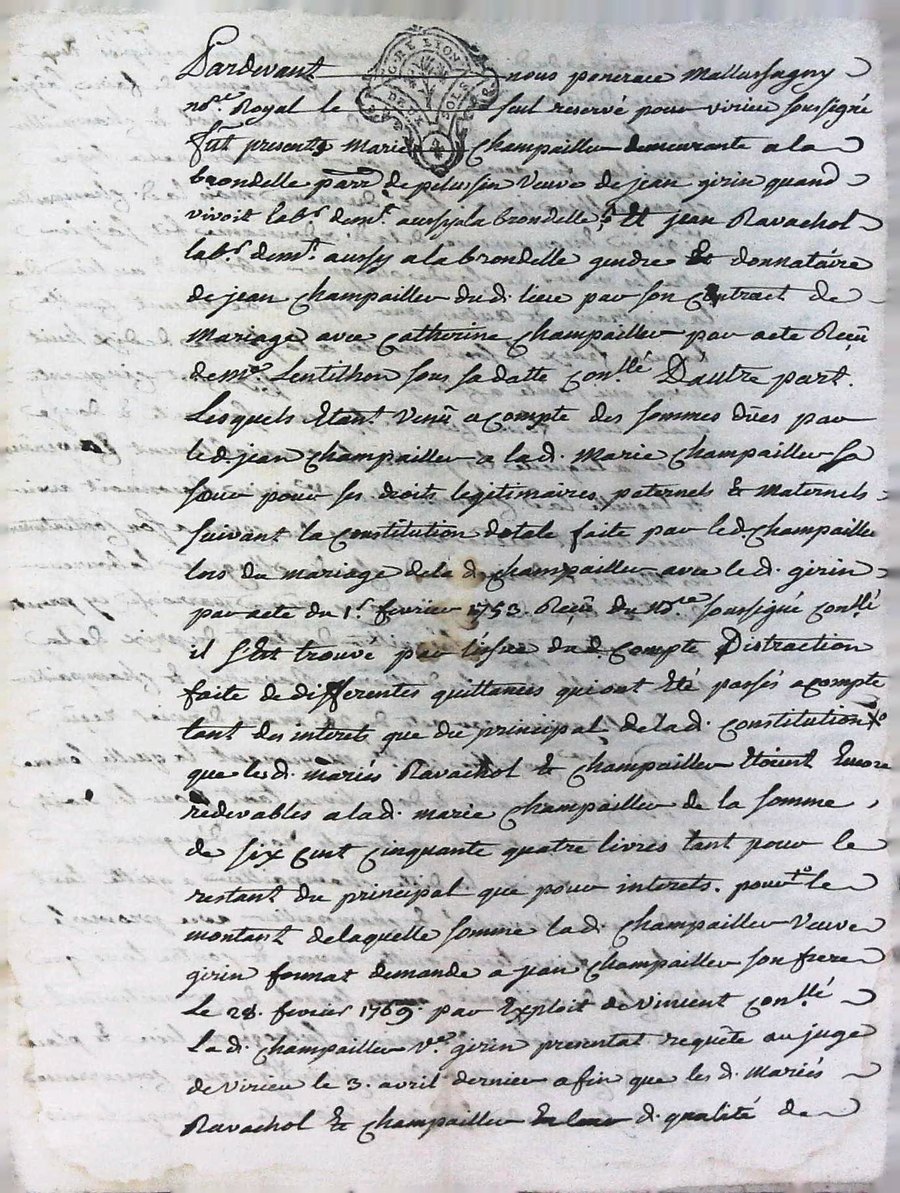 GRE LYON
DEUX SOLS
Pardevant nous ponerace Mallassagny
no.re Royal le seul reservé pour virieu soussigné
fût presents Marie Champailler demeurante a la
brondelle parr de pelussin Veuve de jean girin quand
vivoit labr demt aussy la brondelle ; Et jean Ravachol
labr demt aussy a la brondelle gendre Et donnataire
de jean Champailler du d. lieu par son contract de
Mariage avec Catherine Champailler par acte Reçû
de me Lentilhon sous sa datte con.llé D'autre part.
Lesquels Etant Venû a compte des sommes dûes par
le d. jean Champailler a la d. Marie Champailler sa
sœur pour ses droits legitimaires paternels & Maternels
suivant la Constitution dotale faite par le d. Champailler
lors du mariage de la d. Champailler avec le d. girin
par acte du 1r fevrier 1753. Reçû du nore soussigné conllé
il s'Est trouvé par l'issue du d. Compte Distraction
faite de differentes quittances qui ont Eté passés a compte
tant des interets que du principal de la d. constitution
que les d. mariés Ravachol & Champailler Etoient Encore
redevables a la d. marie Champailler de la somme
de six cent cinquante quatre livres tant pour le
restant du principal que pour interets. pour le
montant de laquelle somme la d. Champailler Veuve
girin format demande a jean Champailler son frere
Le 28. fevrier 1769. par Exploit de Vincent con.llé
La d. Champailler Ve girin presentat requête au juge
de Virieu le 3. avril dernier afin que les d. Mariés
Ravachol & Champailler En leur d. qualité de